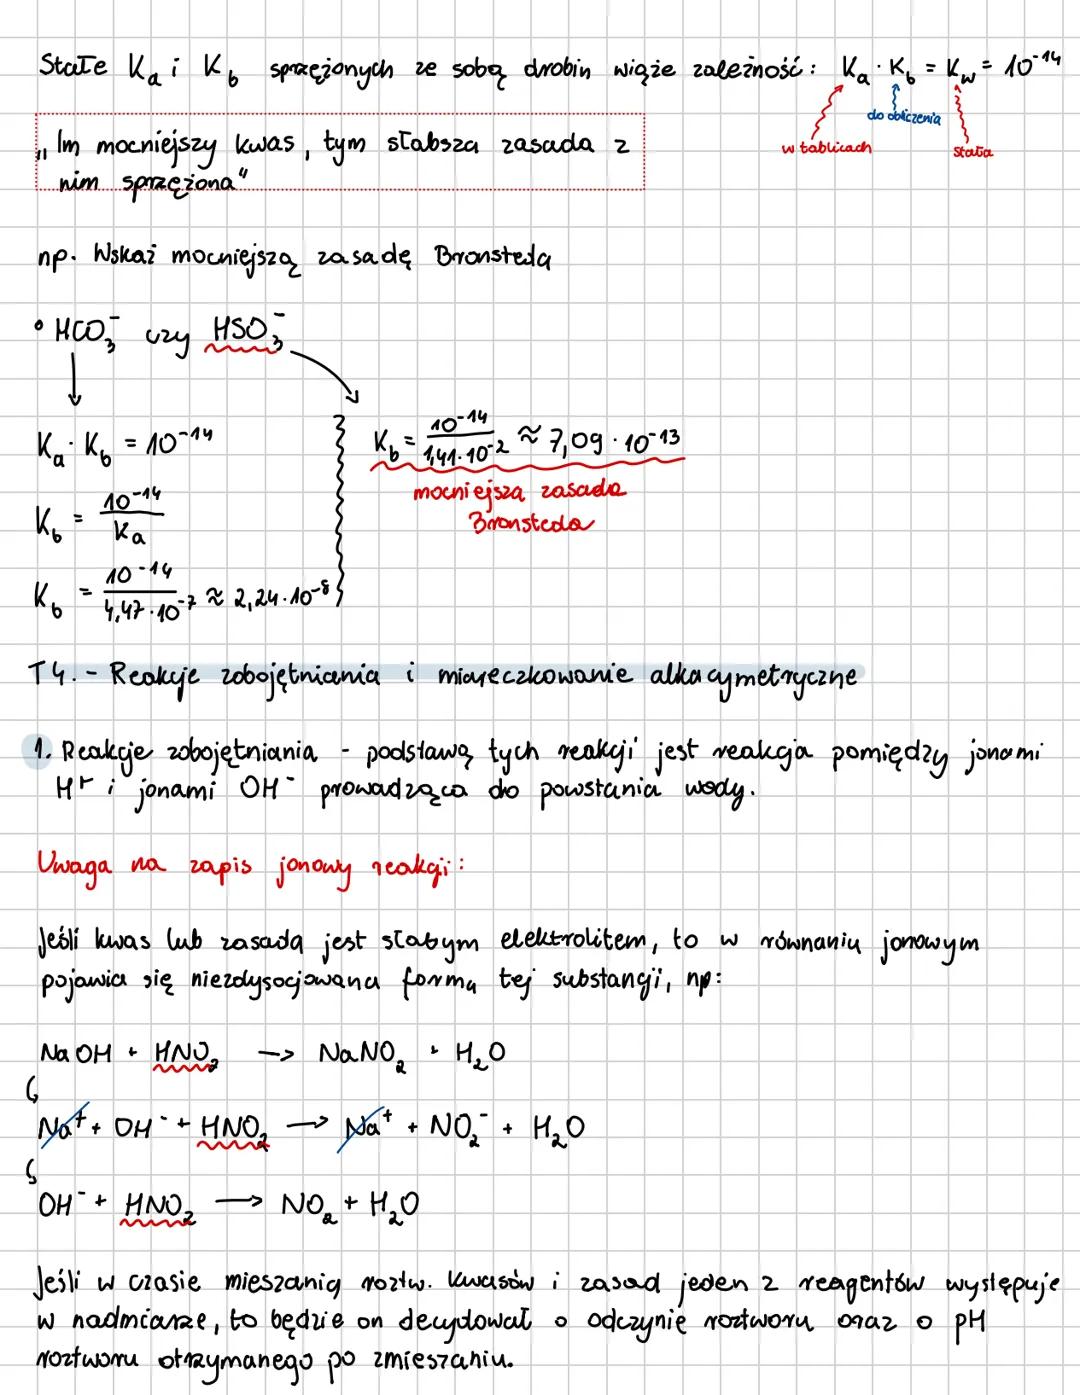 Stałe Kₐ i K_b sprzężonych ze sobą drobin wiąże zależność: Kₐ · K_b = K_w = 10⁻¹⁴
w tablicach
do obliczenia
stała
„Im mocniejszy kwas, tym słabsza zasada z
nim sprzężona"
np. Wskaż mocniejszą zasadę Bronsteda
• HCO₃⁻ czy HSO₃⁻
Kₐ · K_b = 10⁻¹⁴
K_b = 10⁻¹⁴ / Kₐ
K_b = 10⁻¹⁴ / 4,47·10⁻⁷ ≈ 2,24·10⁻⁸
K_b = 10⁻¹⁴ / 1,41·10⁻² ≈ 7,09·10⁻¹³
mocniejsza zasada
Bronsteda
T4. - Reakcje zobojętniania i miareczkowanie alkacymetryczne
1. Reakcje zobojętniania - podstawą tych reakcji jest reakcja pomiędzy jonami
H⁺ i jonami OH⁻ prowadząca do powstania wody.
Uwaga na zapis jonowy reakcji:
Jeśli kwas lub zasada jest słabym elektrolitem, to w równaniu jonowym
pojawia się niezdysocjowana forma tej substancji, np:
NaOH + HNO₂ → NaNO₂ + H₂O
Na⁺ + OH⁻ + HNO₂ → Na⁺ + NO₂⁻ + H₂O
OH⁻ + HNO₂ → NO₂ + H₂O
Jeśli w czasie mieszania roztw. kwasów i zasad jeden z reagentów występuje
w nadmiarze, to będzie on decydował o odczynie roztworu oraz o pH
roztworu otrzymanego po zmieszaniu.